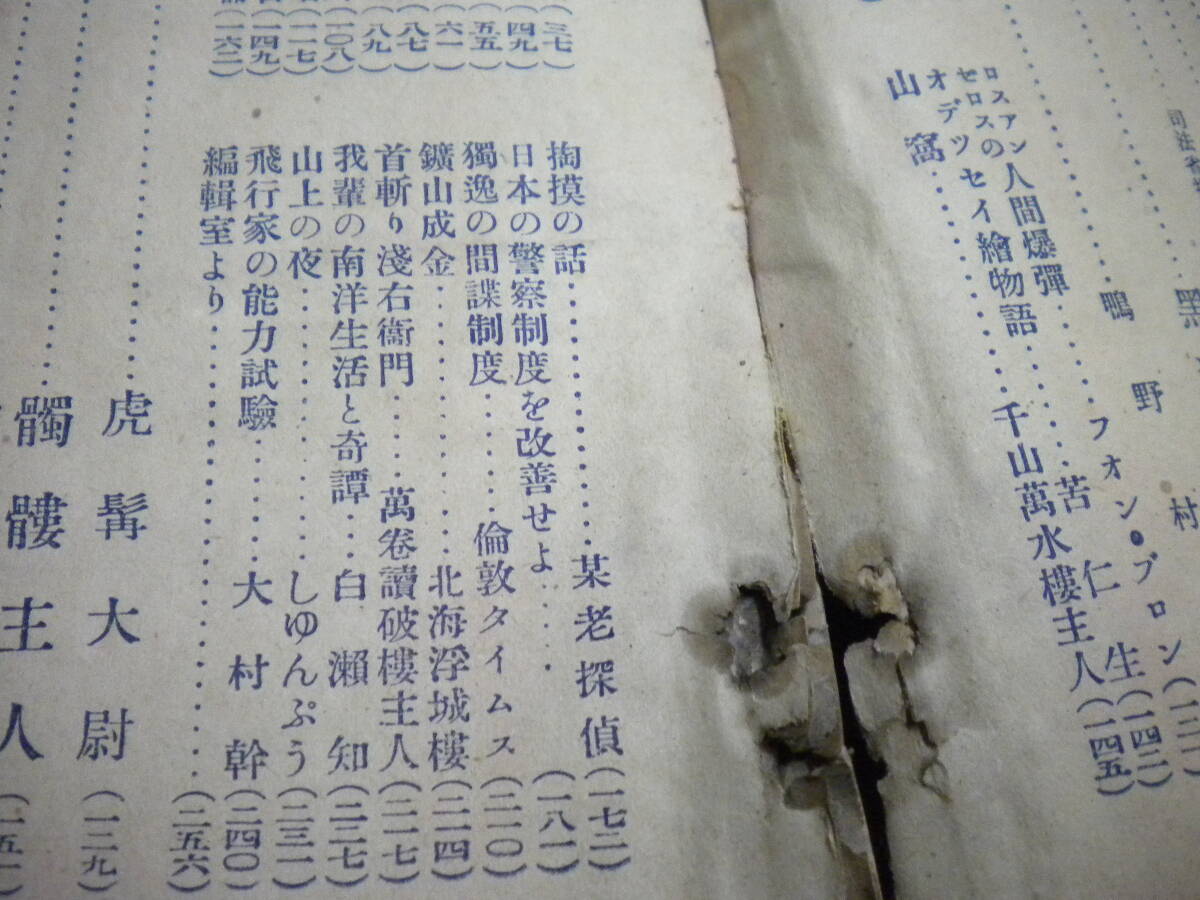 黑
村
鴨野
ロスアン人間爆彈…………フォン・ブロン(一三一)
セロスのオデツセイ繪物語……苦仁生(一四二)
山窩……………千山萬水樓主人(一四五)
(三七)
(四九)
(五五)
(六一)
(八七)
(八九)
(一〇八)
(一一七)
(一四九)
(一六二)
掏摸の話……………某老探偵(一七二)
日本の警察制度を改善せよ……(一八一)
獨逸の間諜制度……倫敦タイムス(二一〇)
鑛山成金……………北海浮城樓(二一四)
首斬り淺右衞門……萬卷讀破樓主人(二一七)
我輩の南洋生活と奇譚…白瀨知(二二七)
山上の夜……………しゆんぷう(二三一)
飛行家の能力試驗……大村幹(二四〇)
編輯室より……………(二五六)
虎髯大尉(一三九)
髑髏主人(一五一)